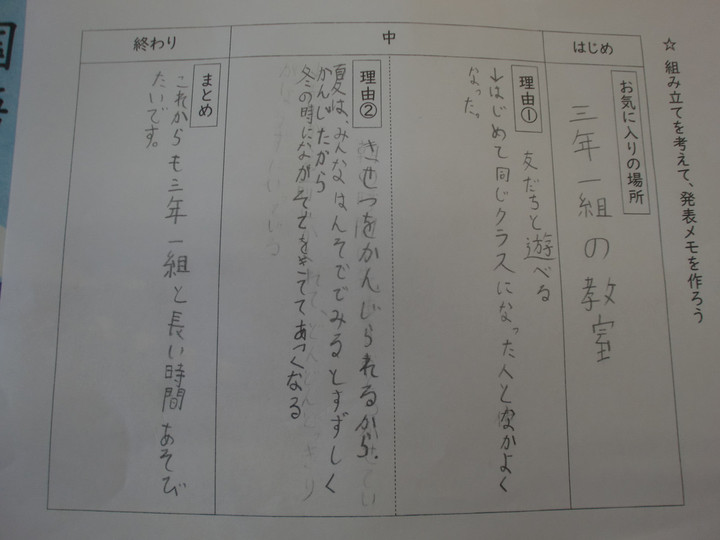 ☆ 組み立てを考えて、発表メモを作ろう
はじめ
お気に入りの場所
三年一組の教室
中
理由①
友だちと遊べる
↓はじめて同じクラスになった人となかよく
なった。
理由②
きせつをかんじられるから.
夏は、みんなはんそででみるとすずしく
かんじたから
冬の時にながそでをきててあつくなる
終わり
まとめ
これからも三年一組と長い時間あそび
たいです。